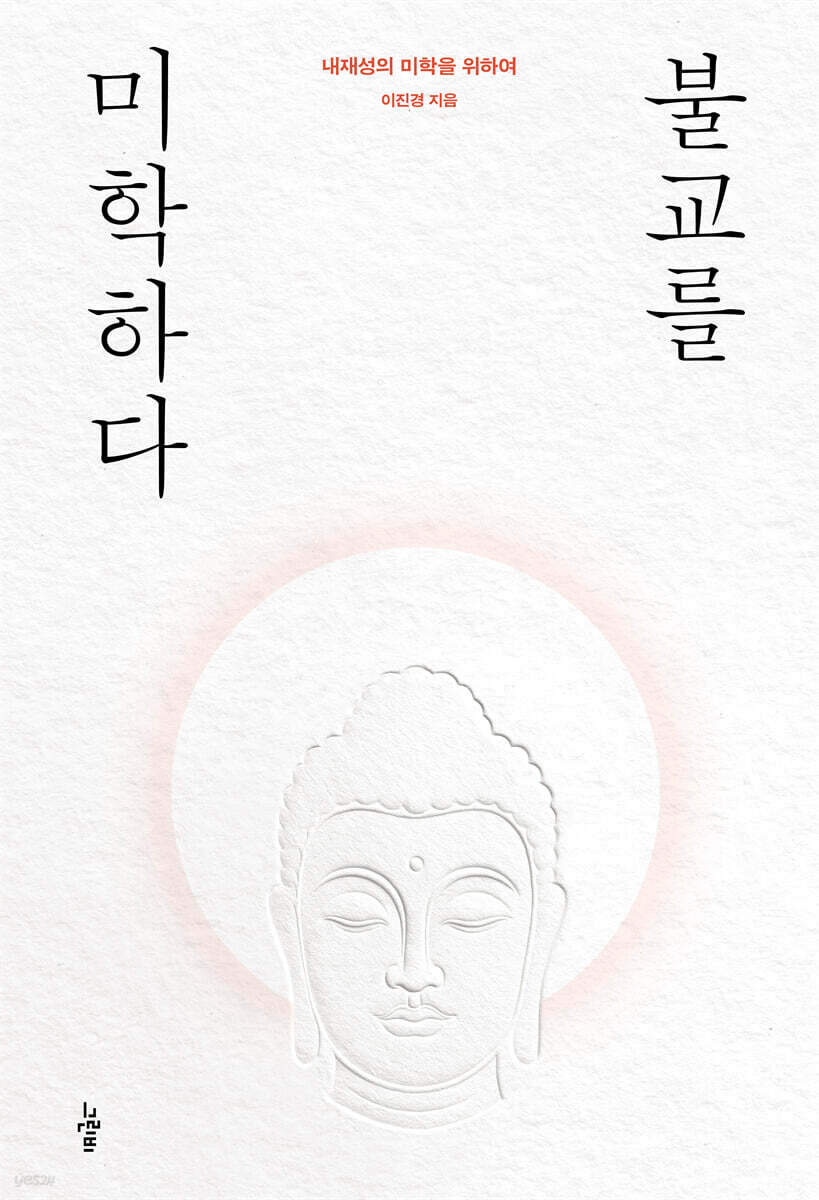 불교를
미학하다
내재성의 미학을 위하여
이진경 지음
그린비
yes24